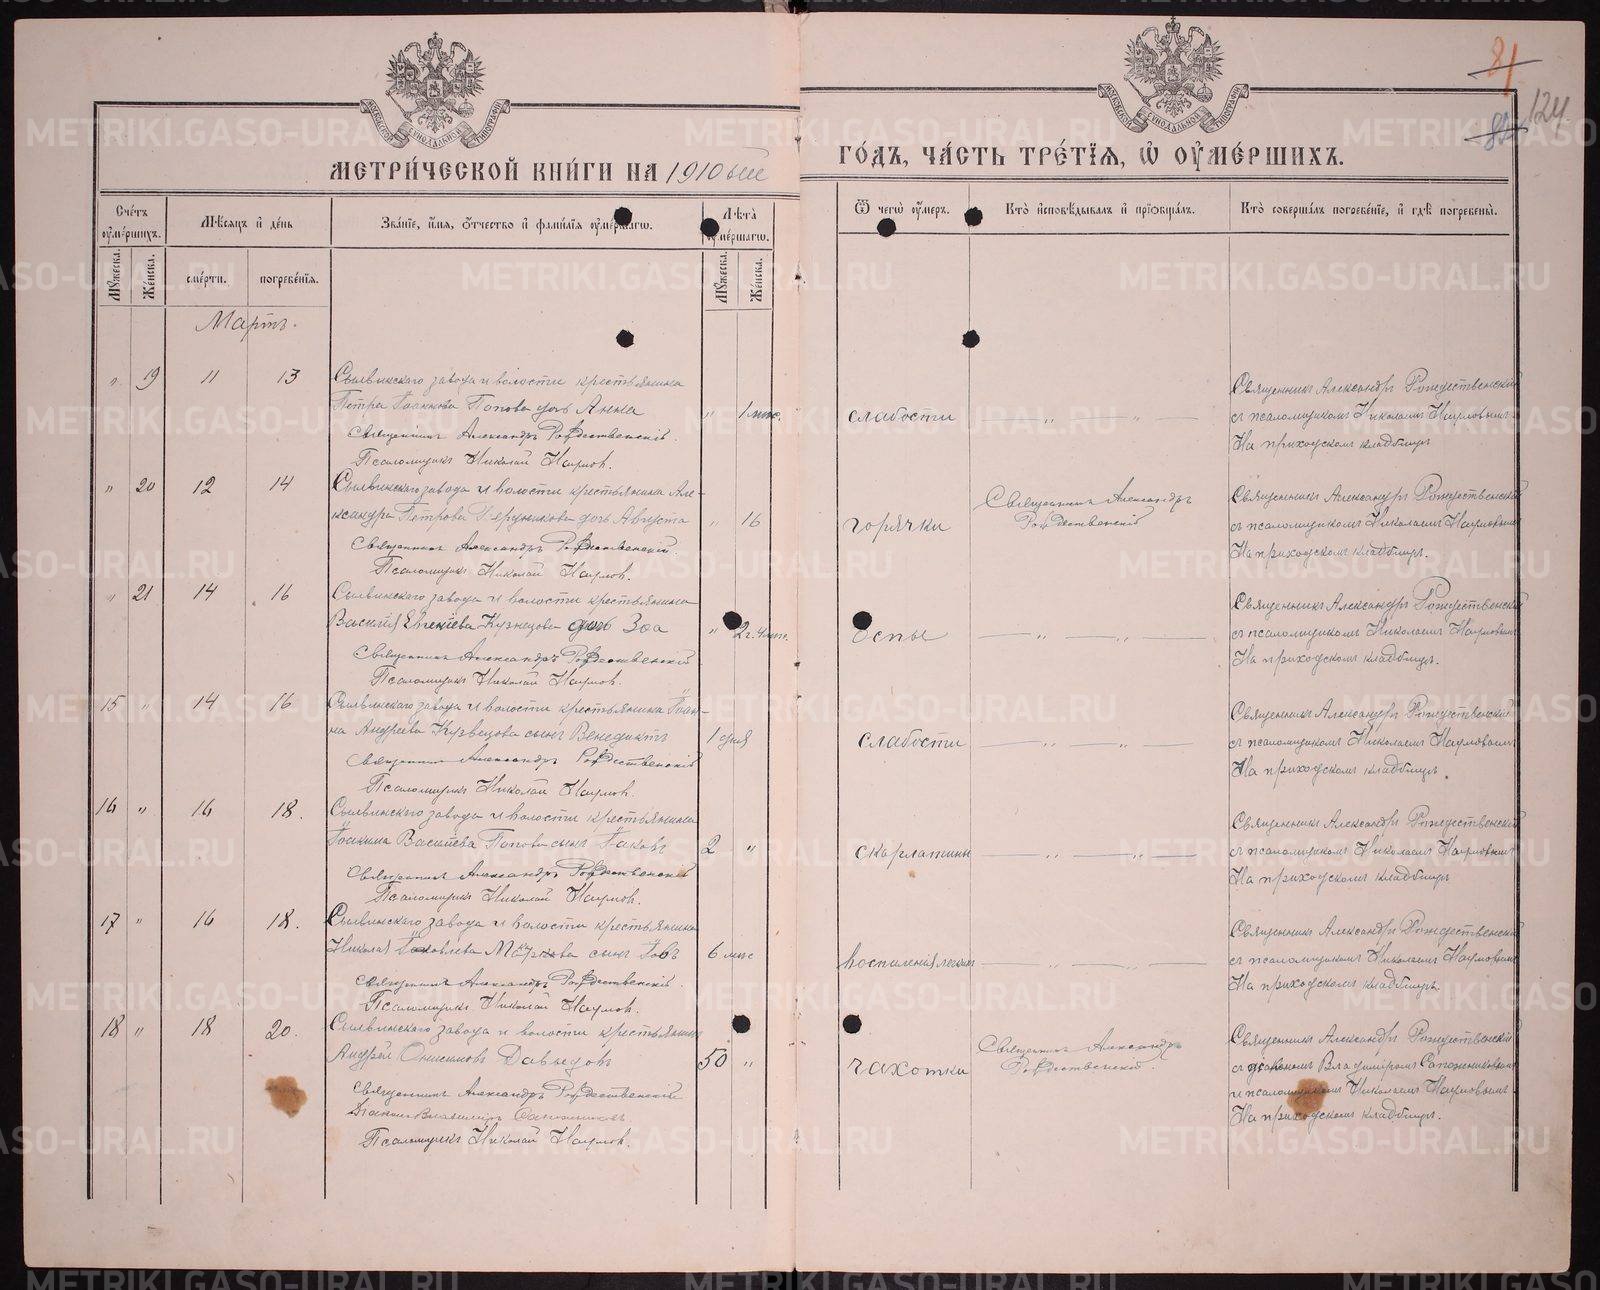 81
124
МЕТРИ́ЧЕСКОЙ КНИ́ГИ НА 1910ый
ГО́ДЪ, ЧА́СТЬ ТРЕ́ТІѦ, Ѡ҆ ОУ҆МЕ́РШИХЪ.
Сче́тъ оу҆ме́ршихъ.
Мꙋ́жеска. Же́нска.
Мѣ́сѧцъ и҆ де́нь
сме́рти. погребе́нїѧ.
Зва́нїе, и҆́мѧ, ѻ҆́тчество и҆ фамі́лїѧ оу҆ме́ршагѡ.
Лѣ́та оу҆ме́ршагѡ.
Мꙋ́жеска. Же́нска.
Ѿ чегѡ̀ оу҆́меръ.
Кто̀ и҆сповѣ́дывалъ и҆ прїѻбща́лъ.
Кто̀ соверша́лъ погребе́нїе, и҆ гдѣ̀ погребены̀.
Мартъ.
" 19 11 13 Сылвинскаго завода и волости крестьянина
Петра Іоаннова Попова дочь Анна " 1 мѣс. слабости
Священникъ Александръ Рождественскій.
Псаломщикъ Николай Наумов.
Священникъ Александръ Рождественскій
съ псаломщикомъ Николаемъ Наумовымъ.
На приходскомъ кладбищѣ
" 20 12 14 Сылвинскаго завода и волости крестьянина Але-
ксандра Петрова дочь Августа " 16 горячки
Священникъ Александръ Рождественскій.
Псаломщикъ Николай Наумов.
Священникъ Александръ
Рождественскій
Священникъ Александръ Рождественскій
съ псаломщикомъ Николаемъ Наумовымъ
На приходскомъ кладбищѣ.
" 21 14 16 Сылвинскаго завода и волости крестьянина
Василія Евгеніева Кузнецова дочь Зоа " 2 г. 4 мѣс. оспы
Священникъ Александръ Рождественскій
Псаломщикъ Николай Наумов.
Священникъ Александръ Рождественскій
съ псаломщикомъ Николаемъ Наумовымъ
На приходскомъ кладбищѣ.
15 " 14 16 Сылвинскаго завода и волости крестьянина Іоан-
на Андреева Кузнецова сынъ Венедиктъ 1 дня слабости
Священникъ Александръ Рождественскій
Псаломщикъ Николай Наумов.
Священникъ Александръ Рождественскій
съ псаломщикомъ Николаемъ Наумовымъ
На приходскомъ кладбищѣ.
16 " 16 18. Сылвинскаго завода и волости крестьянина
Іоакима Васильева Попова сынъ Іаковъ 2 " скарлатины
Священникъ Александръ Рождественскій
Псаломщикъ Николай Наумов.
Священникъ Александръ Рождественскій
съ псаломщикомъ Николаемъ Наумовымъ
На приходскомъ кладбищѣ
17 " 16 18. Сылвинскаго завода и волости крестьянина
Николая Іаковлева сынъ Іовъ 6 мѣс воспаленія легкихъ
Священникъ Александръ Рождественскій.
Псаломщикъ Николай Наумов.
Священникъ Александръ Рождественскій
съ псаломщикомъ Николаемъ Наумовымъ
На приходскомъ кладбищѣ.
18 " 18 20. Сылвинскаго завода и волости крестьянинъ
Андрей Онисимовъ Давыдовъ 50 " чахотки
Священникъ Александръ Рождественскій
Діаконъ Владиміръ Сапожниковъ
Псаломщикъ Николай Наумов.
Священникъ Александръ
Рождественскій.
Священникъ Александръ Рождественскій
съ діакономъ Владиміромъ Сапожниковымъ
и псаломщикомъ Николаемъ Наумовымъ.
На приходскомъ кладбищѣ.
METRIKI.GASO-URAL.RU